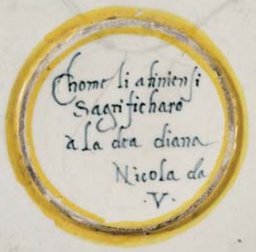 Chome li atiniensi
Sagrificharo
a la dea diana
Nicola da
.V.